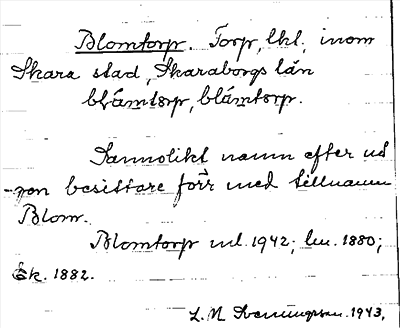 Blomtorp. Torp, lht, inom
Skara stad, Skaraborgs län
blåmtorp, blåmtorp.
Sannolikt namn efter nå
-gon besittare förr med tillnamn
Blom.
Blomtorp 1942; 1880;
Ek. 1882.
L. N. Svenungsson. 1943.